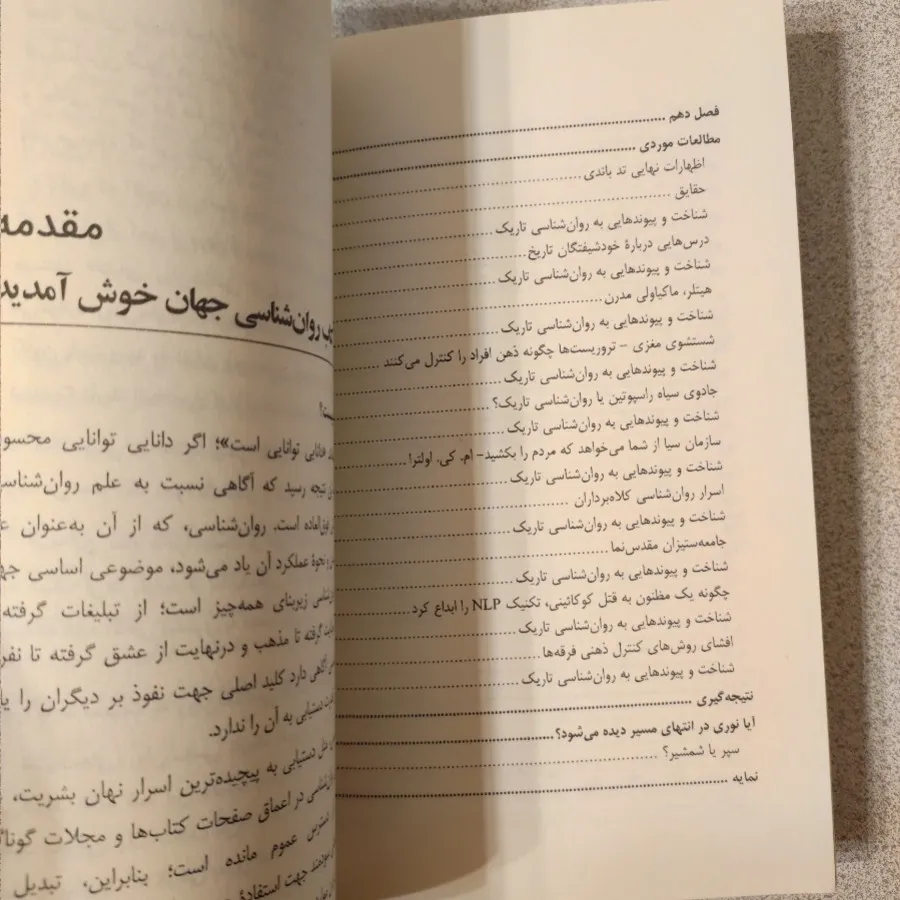 فصل دهم
مطالعات موردی
اظهارات نهایی تد باندی
حقایق
شناخت و پیوندهایی به روان‌شناسی تاریک
درس‌هایی دربارهٔ خودشیفتگان تاریخ
شناخت و پیوندهایی به روان‌شناسی تاریک
هیتلر، ماکیاولی مدرن
شناخت و پیوندهایی به روان‌شناسی تاریک
شستشوی مغزی – تروریست‌ها چگونه ذهن افراد را کنترل می‌کنند
شناخت و پیوندهایی به روان‌شناسی تاریک
جادوی سیاه راسپوتین یا روان‌شناسی تاریک؟
شناخت و پیوندهایی به روان‌شناسی تاریک
سازمان سیا از شما می‌خواهد که مردم را بکشید- ام. کی. اولترا
شناخت و پیوندهایی به روان‌شناسی تاریک
اسرار روان‌شناسی کلاه‌برداران
شناخت و پیوندهایی به روان‌شناسی تاریک
جامعه‌ستیزان مقدس‌نما
شناخت و پیوندهایی به روان‌شناسی تاریک
چگونه یک مظنون به قتل کوکائینی، تکنیک NLP را ابداع کرد
شناخت و پیوندهایی به روان‌شناسی تاریک
افشای روش‌های کنترل ذهنی فرقه‌ها
شناخت و پیوندهایی به روان‌شناسی تاریک
نتیجه‌گیری
آیا نوری در انتهای مسیر دیده می‌شود؟
سپر یا شمشیر؟
نمایه
مقدمه
روان‌شناسی جهان خوش آمدید
توانایی است»؛ اگر دانایی توانایی
نتیجه رسید که آگاهی نسبت به علم
است. روان‌شناسی، که از آن به‌عنوان
و نحوهٔ عملکرد آن یاد می‌شود، موضوعی اساسی
زیربنای همه‌چیز است؛ از تبلیغات گرفته
گرفته تا مذهب و درنهایت از عشق گرفته تا
آگاهی دارد کلید اصلی جهت نفوذ بر دیگران را
دستیابی به آن را ندارد.
دستیابی به پیچیده‌ترین اسرار نهان بشریت،
در اعماق صفحات کتاب‌ها و مجلات
عموم مانده است؛ بنابراین، تبدیل
جهت